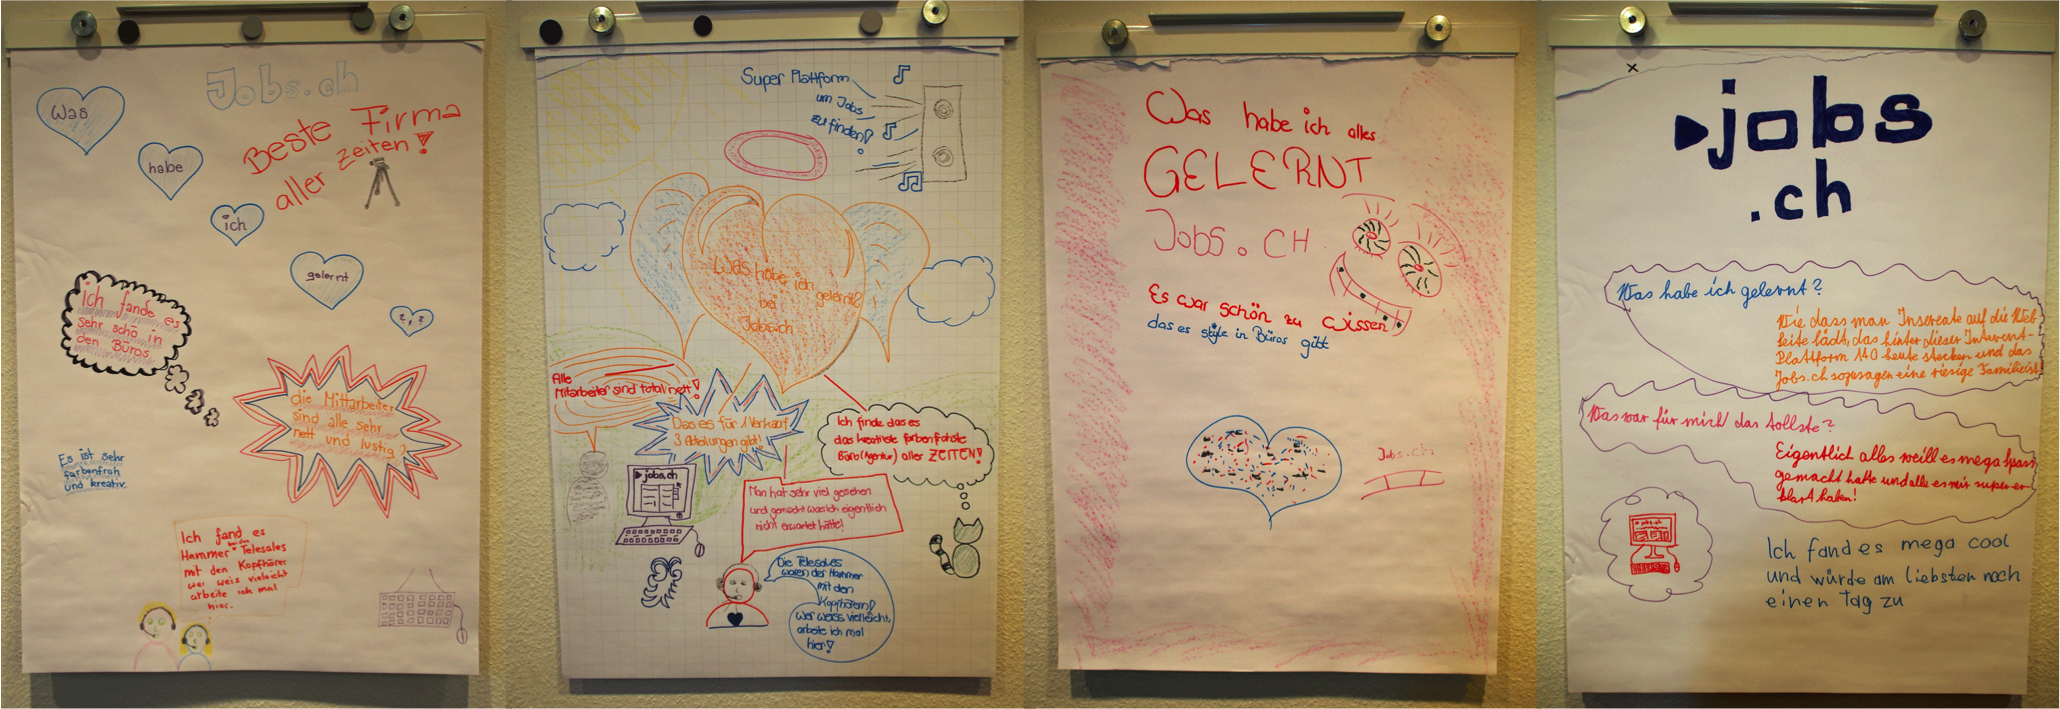 Jobs.ch
Beste Firma
aller Zeiten!
Was
habe
ich
gelernt
???
Ich fande es
sehr schö in
den Büros
die Mittarbeiter
sind alle sehr
nett und lustig
Es ist sehr
farbenfroh
und kreativ.
Ich fand es
Hammer bei den Telesales
mit den Kopfhörer
wer weis vieleicht
arbeite ich mal
hier.
Super Plattform
um Jobs
zu finden!
Was habe ich gelernt?
bei
Jobs.ch
Alle
Mitarbeiter sind total nett!
Das es für 1 Verkauf
3 Abteilungen gibt!
Ich finde das es
das kreativste farbenfrohste
Büro (Agentur) aller ZEITEN!
jobs.ch
Man hat sehr viel gesehen
und gemacht was ich eigentlich
nicht erwartet hätte!
Die Telesales
waren der Hammer
mit den
Kopfhörern!
Wer weiss vielleicht,
arbeite ich mal
hier!
Was habe ich alles
GELERNT
JobS.CH
Es war schön zu wissen
das es style in Büros gibt
Jobs.ch
jobs
.ch
Was habe ich gelernt?
Wie dass man Inserate auf die Web
seite lädt, das hinter dieser Internet-
Plattform 110 Leute stecken und das
Jobs.ch sozusagen eine riesige Familie ist
Was war für mich das tollste?
Eigentlich alles weill es mega spass
gemacht hatte und alle es mir super er
klärt haben!
jobs.ch
Ich fand es mega cool
und würde am liebsten noch
einen Tag zu